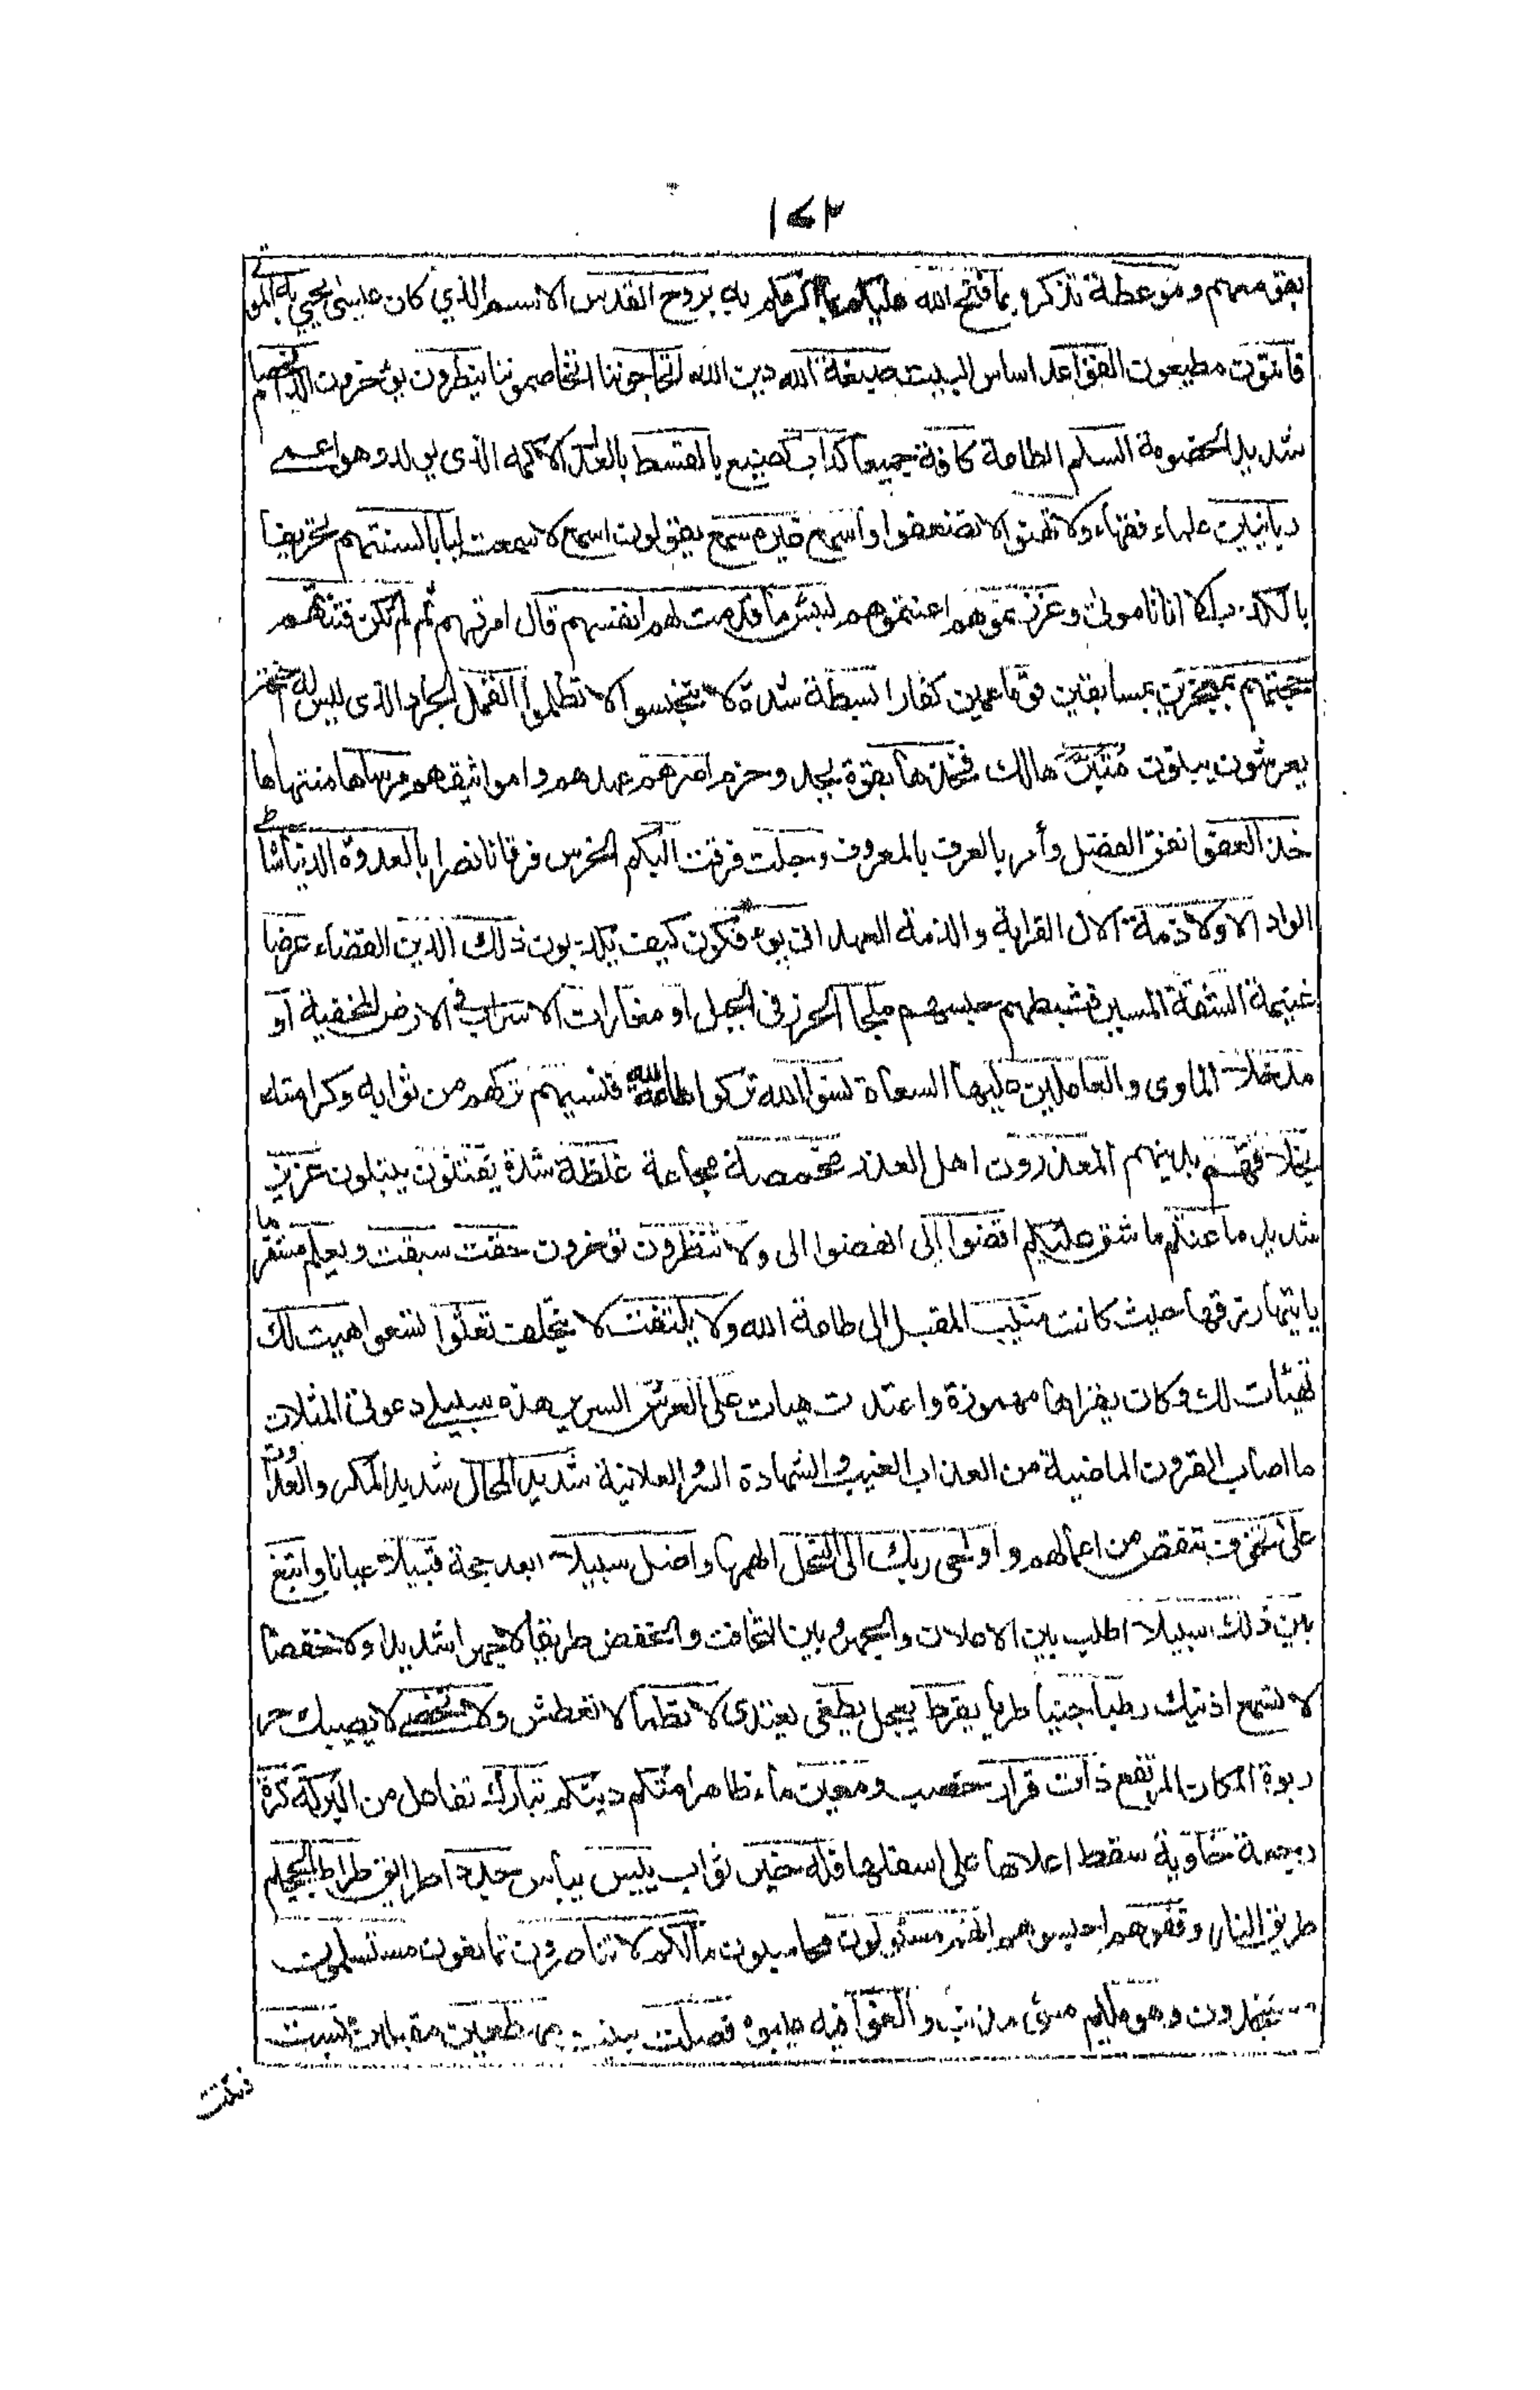 ١٧٢
بقى معهم وموعظة تذكرة بما فتح الله عليكم بما اكرمكم به بروح القدس الاسم الذي كان عيسى يحيي به الموتى
قانتون مطيعون القواعد اساس البيت صبغة الله دين الله اتحاجوننا اتخاصموننا ينظرون يؤخرون الد الخصام
شديد الخصومة السلم الطاعة كافة جميعا كداب كصنيع بالقسط بالعدل الاكمه الذى يولد وهو اعمى
ربانيين علماء فقهاء ولا تهنوا لا تضعفوا واسمع غير مسمع يقولون اسمع لا سمعت ليا بالسنتهم تحريفا
بالكذب الا اناثا موتى وعزرتموهم اعنتموهم لبئس ما قدمت لهم انفسهم قال امرتهم ثم لم تكن فتنتهم
حجتهم بمعجزين بمسابقين قوما عمين كفارا بسطة شدة لا تبخسوا لا تظلموا القمل الجراد الذى ليس له اجنحة
يعرشون يبنون متبر هالك فخذها بقوة بجد وحزم اصرهم عهدهم ومواثيقهم مرساها منتهاها
خذ العفو انفق الفضل وأمر بالعرف بالمعروف وجلت فرقت البكم الخرس فرقانا نصرا بالعدوة الدنيا شاطئ
الواد الا ولا ذمة الال القرابة والذمة العهد انى يؤفكون كيف يكذبون ذلك الدين القضاء عرضا
غنيمة الشقة المسير فثبطهم حبسهم ملجا الحرز في الجبل او مغارات الاسراب في الارض المخفية او
مدخلا الماوى والعاملين عليها السعاة نسوا الله تركوا طاعة الله فنسيهم تركهم من ثوابه وكرامته
بخلاقهم بدينهم المعذرون اهل العذر مخمصة مجاعة غلظة شدة يفتنون يبتلون عزيز
شديد ما عنتم ما شق عليكم اقضوا الى انهضوا الى ولا تنظرون تؤخرون حقت سبقت ويعلم مستقرها
ياتيها رزقها حيث كانت منيب المقبل الى طاعة الله ولا يلتفت لا يتخلف تعثوا تسعوا هيت لك
تهيأت لك وكان يقراها مهموزة واعتدت هيات على العرش السرير هذه سبيلي دعوتى المثلات
ما اصاب القرون الماضية من العذاب الغيب والشهادة السر والعلانية شديد المحال شديد المكر والعداوة
على تخوف بتنقص من اعمالهم واوحى ربك الى النحل الهمها واضل سبيلا ابعد حجة قبيلا عيانا وابتغ
بين ذلك سبيلا اطلب بين الاعلان والجهر وبين التخافت والخفض طريقا لا جهرا شديدا ولا خفضا
لا تسمع اذنيك رطبا جنيا طريا يفرط يعجل يطغى يعتدى لا تظما لا تعطش ولا تضحى لا يصيبك حر
ربوة المكان المرتفع ذات قرار خصب ومعين ماء ظاهر امتكم دينكم تبارك تفاعل من البركة كرة
رجعة خاوية سقط اعلاها على اسفلها فله خير ثواب يبلس ييأس جدد طرايق صراط الجحيم
طريق النار وقفوهم احبسوهم انهم مسئولون محاسبون ما لكم لا تناصرون تمانعون مستسلمون
وهو مليم مسئ مذنب والغوا فيه عيبوه فصلت بينت مهطعين مقبلين بست